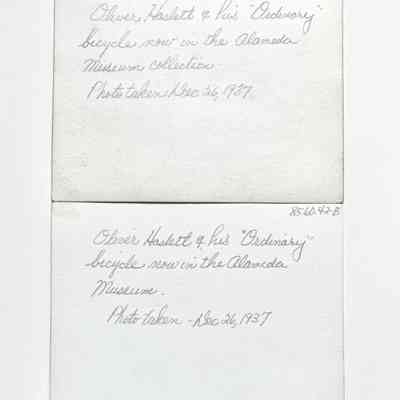 Oliver Haslett & his "Ordinary"
bicycle now in the Alameda
Museum collection
Photo taken Dec 26, 1937.
85.60.42-B
Oliver Haslett & his "Ordinary"
bicycle now in the Alameda
Museum.
Photo taken - Dec 26, 1937